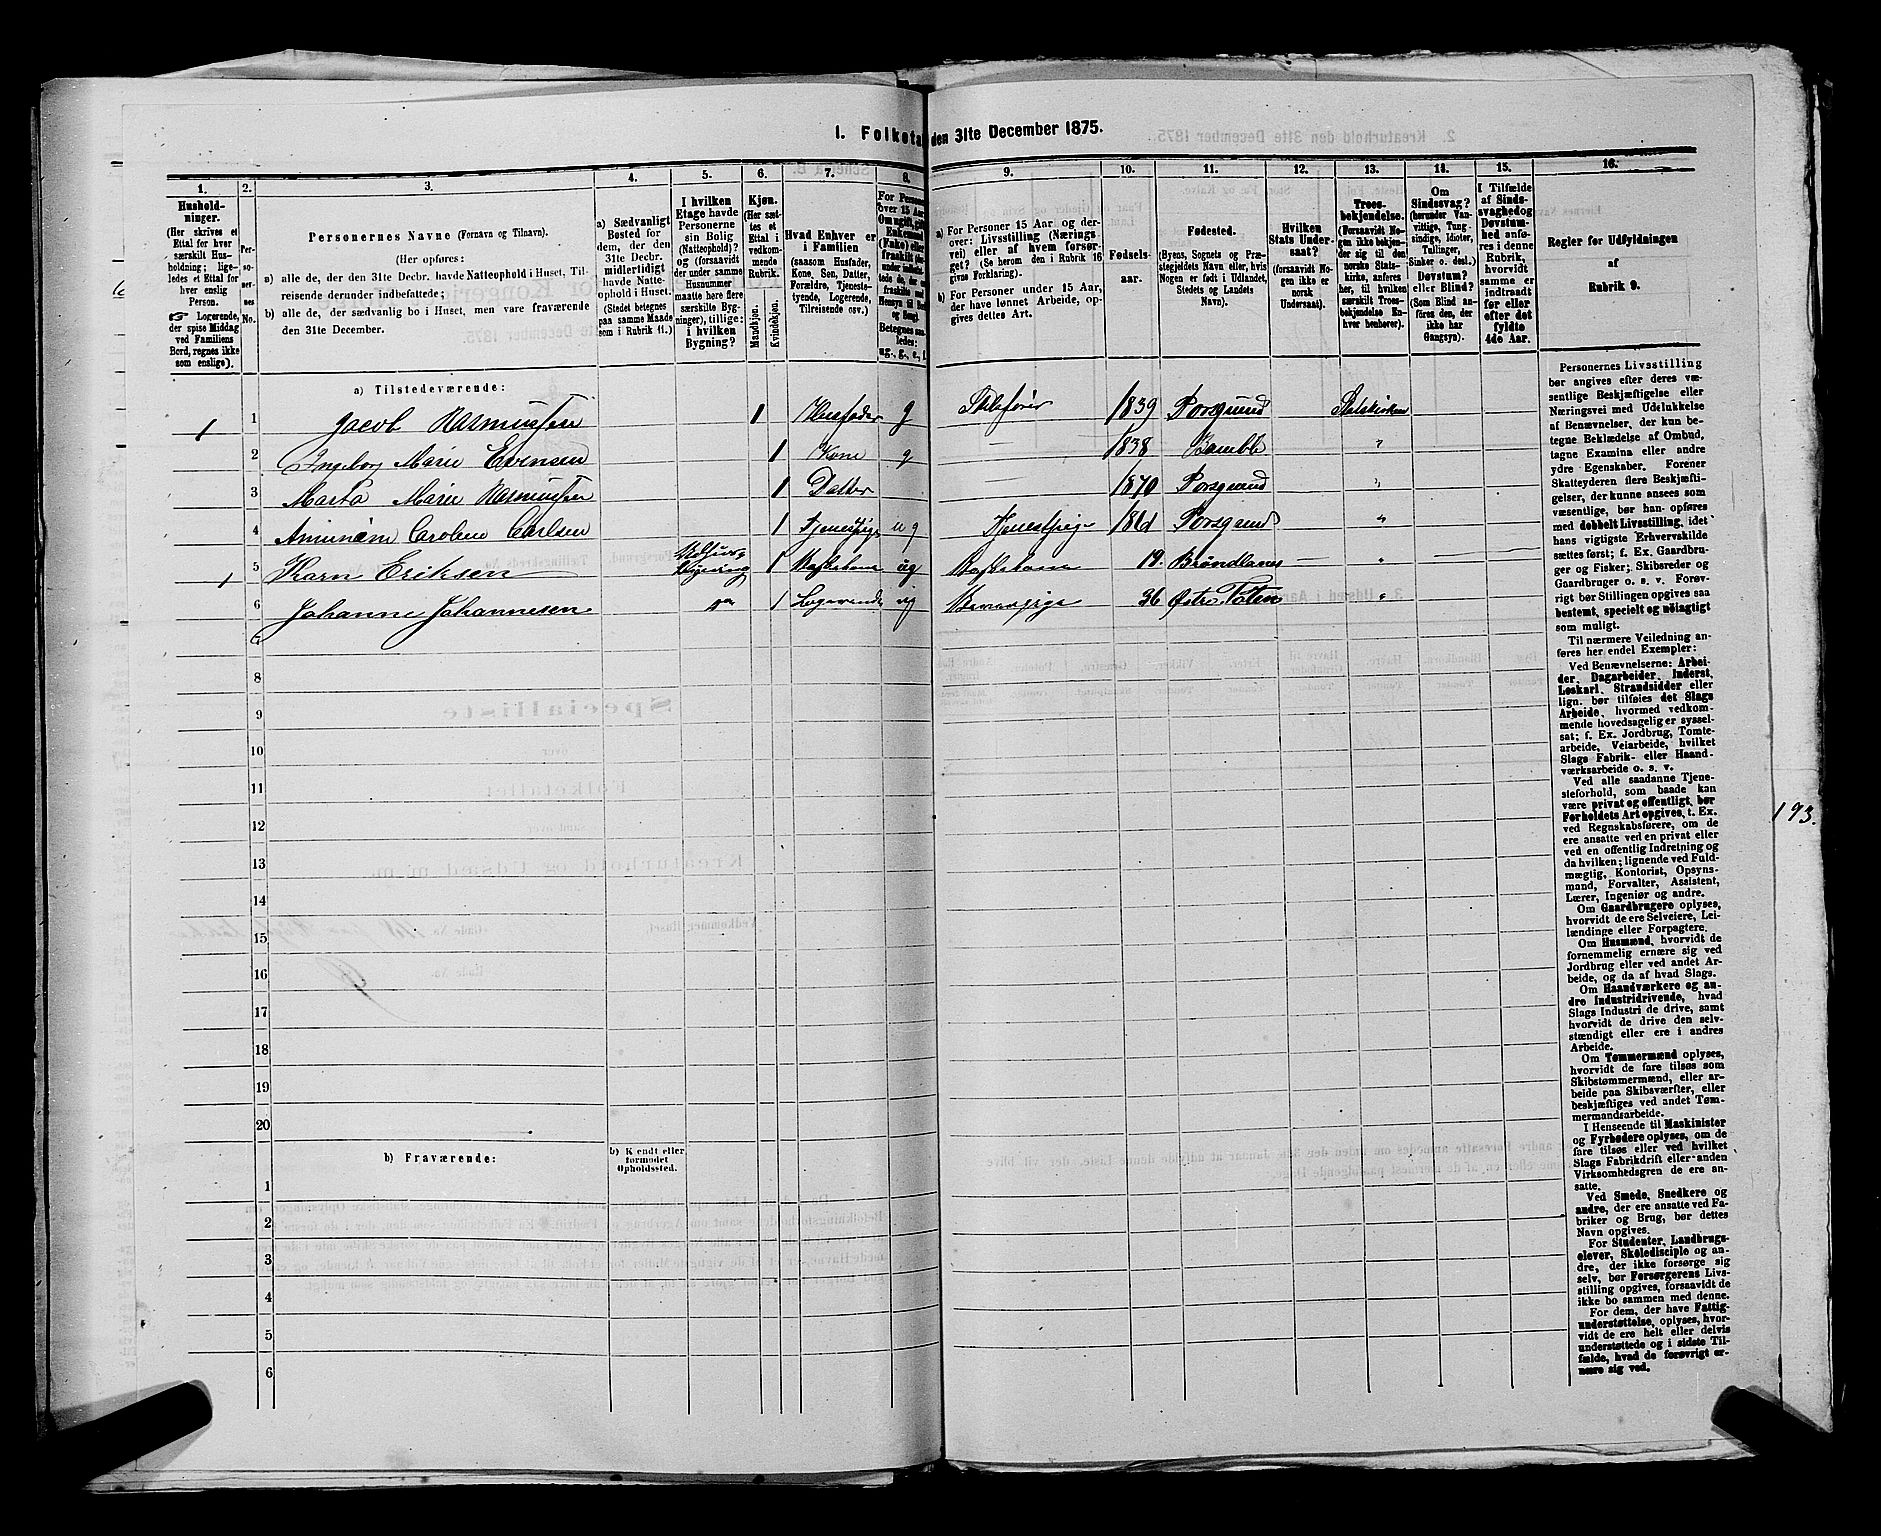 1. Folketal den 31te December 1875.
1. 2. 3. 4. 5. 6. 7. 8. 9. 10. 11. 12. 13. 14. 15. 16.
Hushold-
ninger.
(Her skrives et
Ettal for hver
særskilt Hus-
holdning; lige-
ledes et Ettal for
hver enslig
Person.
☞ Logerende,
der spise Middag
ved Familiens
Bord, regnes ikke
som enslige).
Per-
so-
ner-
nes
No.
Personernes Navne (Fornavn og Tilnavn).
(Her opføres:
a) alle de, der den 31te Decbr. havde Natteophold i Huset, Til-
reisende derunder indbefattede;
b) alle de, der sædvanlig bo i Huset, men vare fraværende
den 31te December.
a) Sædvanligt
Bosted for
dem, der den
31te Decbr.
midlertidigt
havde Natte-
ophold i Huset.
(Stedet betegnes
paa samme Maade
som i Rubrik 11.)
I hvilken
Etage havde
Personerne
sin Bolig
(Natteophold)?
og (forsaavidt
der under samme
Husnummer
maatte høre flere
særskilte Byg-
ninger), tillige:
i hvilken
Bygning?
Kjøn.
(Her sæt-
tes et
Ettal i
vedkom-
mende
Rubrik.
Mandkjøn.
Kvindekjøn.
Hvad Enhver er
i Familien
(saasom Husfader,
Kone, Søn, Datter,
Forældre, Tjeneste-
tyende, Logerende,
Tilreisende osv.)
For Persone
over 15 Aar
Om ugift, gift
Enkemand
(Enke) eller
fraskilt
Betegnes saa-
ledes:
ug., g., e., f.
a) For Personer 15 Aar og der-
over: Livsstilling (Nærings-
vei) eller af hvem forsør-
get? (Se herom den i Rubrik 16
givne Forklaring).
b) For Personer under 15 Aar,
der have lønnet Arbeide, op-
gives dettes Art.
Fødsels-
aar.
Fødested.
(Byens, Sognets og Præ-
stegjeldets Navn eller, hvis
Nogen er født i Udlandet,
Stedets og Landets
Navn).
Hvilken
Stats Under-
saat?
(forsaavidt No-
gen ikke er
norsk
Undersaat).
Troes-
bekjendelse.
(Forsaavidt No-
gen ikke bekjen-
der sig til den
norske Stats-
kirke, anføres
her, til hvilken
særskilt Troes-
bekjendelse En-
hver henhører).
Om
Sindssvag?
(herunder Van-
vittige, Tung-
sindige, Idioter,
Tullinger,
Sinker o. desl.)
Døvstum?
eller Blind?
(Som Blind an-
føres den, der
ikke har
Gangsyn).
I Tilfælde
af Sinds-
svaghed og
Døvstum-
hed, anfø-
res i denne
Rubrik,
hvorvidt
samme er
indtraadt
før eller
efter det
fyldte
4de Aar.
Regler for Udfyldningen
af
Rubrik 9.
a) Tilstedeværende:
1 1 Jacob Rasmussen 1 Husfader g Skibsfører 1839 Porsgrund Statskirken
2 Ingeborg Marie Evensen 1 Kone g 1838 Bamble "
3 Marta Marie Rasmussen 1 Datter 1870 Porsgrund "
4 Caroline Carlsen 1 ug Porsgrund "
1 5 Karn Eriksen 1 ug 19. Brøndlanes "
6 Johanne Johannesen 1 Logerende ug 36 Østre Toten "
7
8
9
10
11
12
13
14
15
16
17
18
19
20
b) Fraværende:
b) Kendt eller
formodet
Opholdssted.
1
2
3
4
5
6
Personernes Livsstilling
bør angives efter deres væ-
sentlige Beskjæftigelse eller
Næringsvei med Udelukkelse
af Benævnelser, der kun be-
tegne Beklædelse af Ombud,
tagne Examina eller andre
ydre Egenskaber. Forener
Skatteyderen flere Beskjæfti-
gelser, der kunne ansees som
væsentlige, bør han opføres
med dobbelt Livsstilling, idet
hans vigtigste Erhvervskilde
sættes først; f. Ex. Gaardbru-
ger og Fisker; Skibsreder og
Gaardbruger o. s. v. Forøv-
rigt bør Stillingen opgives saa
bestemt, specielt og nøiagtigt
som muligt.
Til nærmere Veiledning an-
føres her endel Exempler:
Ved Benævnelserne: Arbei-
der, Dagarbeider, Inderst,
Løskarl, Strandsidder eller
lign. bør tilføies det Slags
Arbeide, hvormed vedkom-
mende hovedsagelig er syssel-
sat; f. Ex. Jordbrug, Tomte-
arbeide, Veiarbeide, hvilket
Slags Fabrik- eller Haand-
værksarbeide o. s. v.
Ved alle saadanne Tjene-
steforhold, som baade kan
være privat og offentligt, bør
Forholdets Art opgives, t. Ex.
ved Regnskabsførere, om de
ere ansatte ved en privat eller
ved en offentlig Indretning og
da hvilken; lignende ved Fuld-
mægtig, Kontorist, Opsyns-
mand, Forvalter, Assistent,
Lærer, Ingeniør og andre.
Om Gaardbrugere oplyses,
hvorvidt de ere Selveiere, Lei-
lændinge eller Forpagtere.
Om Husmænd, hvorvidt de
fornemmelig ernære sig ved
Jordbrug eller ved andet Ar-
beide, og da af hvad Slags.
Om Haandværkere og an-
dre Industridrivende, hvad
Slags Industri de drive, samt
hvorvidt de drive den selv-
stændigt eller ere i andres
Arbeide.
Om Tømmermænd oplyses,
hvorvidt de fare tilsøs som
Skibstømmermænd, eller ar-
beide paa Skibsværfter, eller
beskjæftiges ved andet Tøm-
mermandsarbeide.
I Henseende til Maskinister
og Fyrbødere oplyses, om de
fare tilsøs eller ved hvilket
Slags Fabrikdrift eller anden
Virksomhedsgren de ere an-
satte.
Ved Smede, Snedkere og
andre, der ere ansatte ved Fa-
briker og Brug, bør dettes
Navn opgives.
For Studenter, Landbrugs-
elever, Skoledisciple og an-
dre, der ikke forsørge sig
selv, bør Forsørgerens Livs-
stilling opgives, forsaavidt de
ikke bo sammen med denne.
For dem, der have Fattig-
understøttelse, oplyses, hvor-
vidt de ere helt eller delvis
understøttede og i sidste Til-
fælde, hvad de forøvrigt er-
nære sig ved.
193.